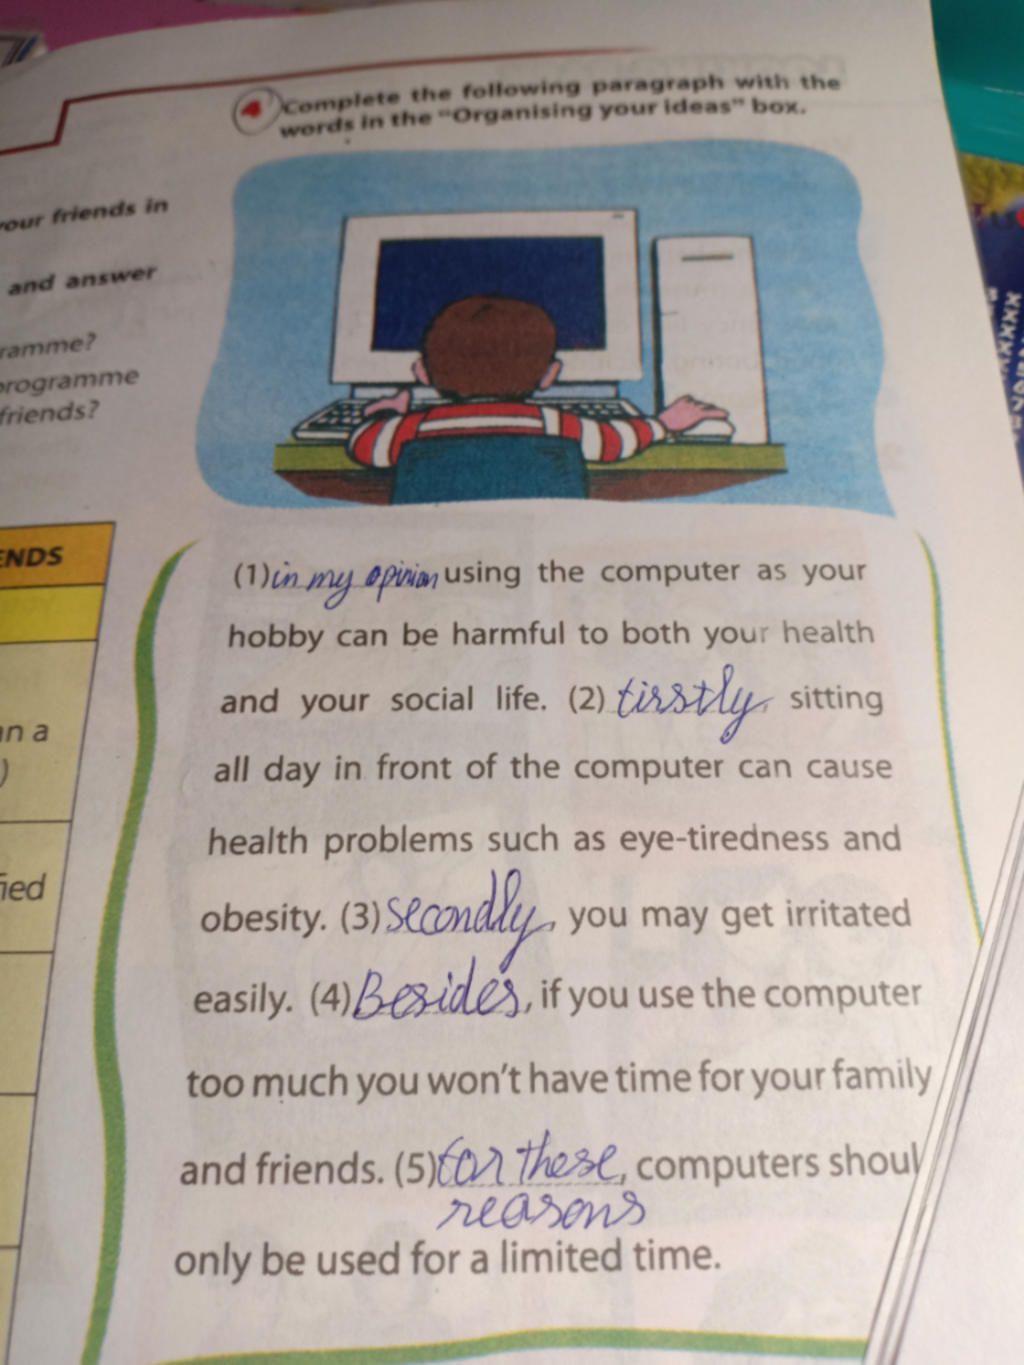 4 Complete the following paragraph with the
words in the "Organising your ideas" box.
your friends in
and answer
ramme?
programme
friends?
ENDS
an a
)
fied
(1) in my opinion using the computer as your
hobby can be harmful to both your health
and your social life. (2) tirstly, sitting
all day in front of the computer can cause
health problems such as eye-tiredness and
obesity. (3) secondly, you may get irritated
easily. (4) Besides, if you use the computer
too much you won't have time for your family
and friends. (5) for these, computers shoul
reasons
only be used for a limited time.